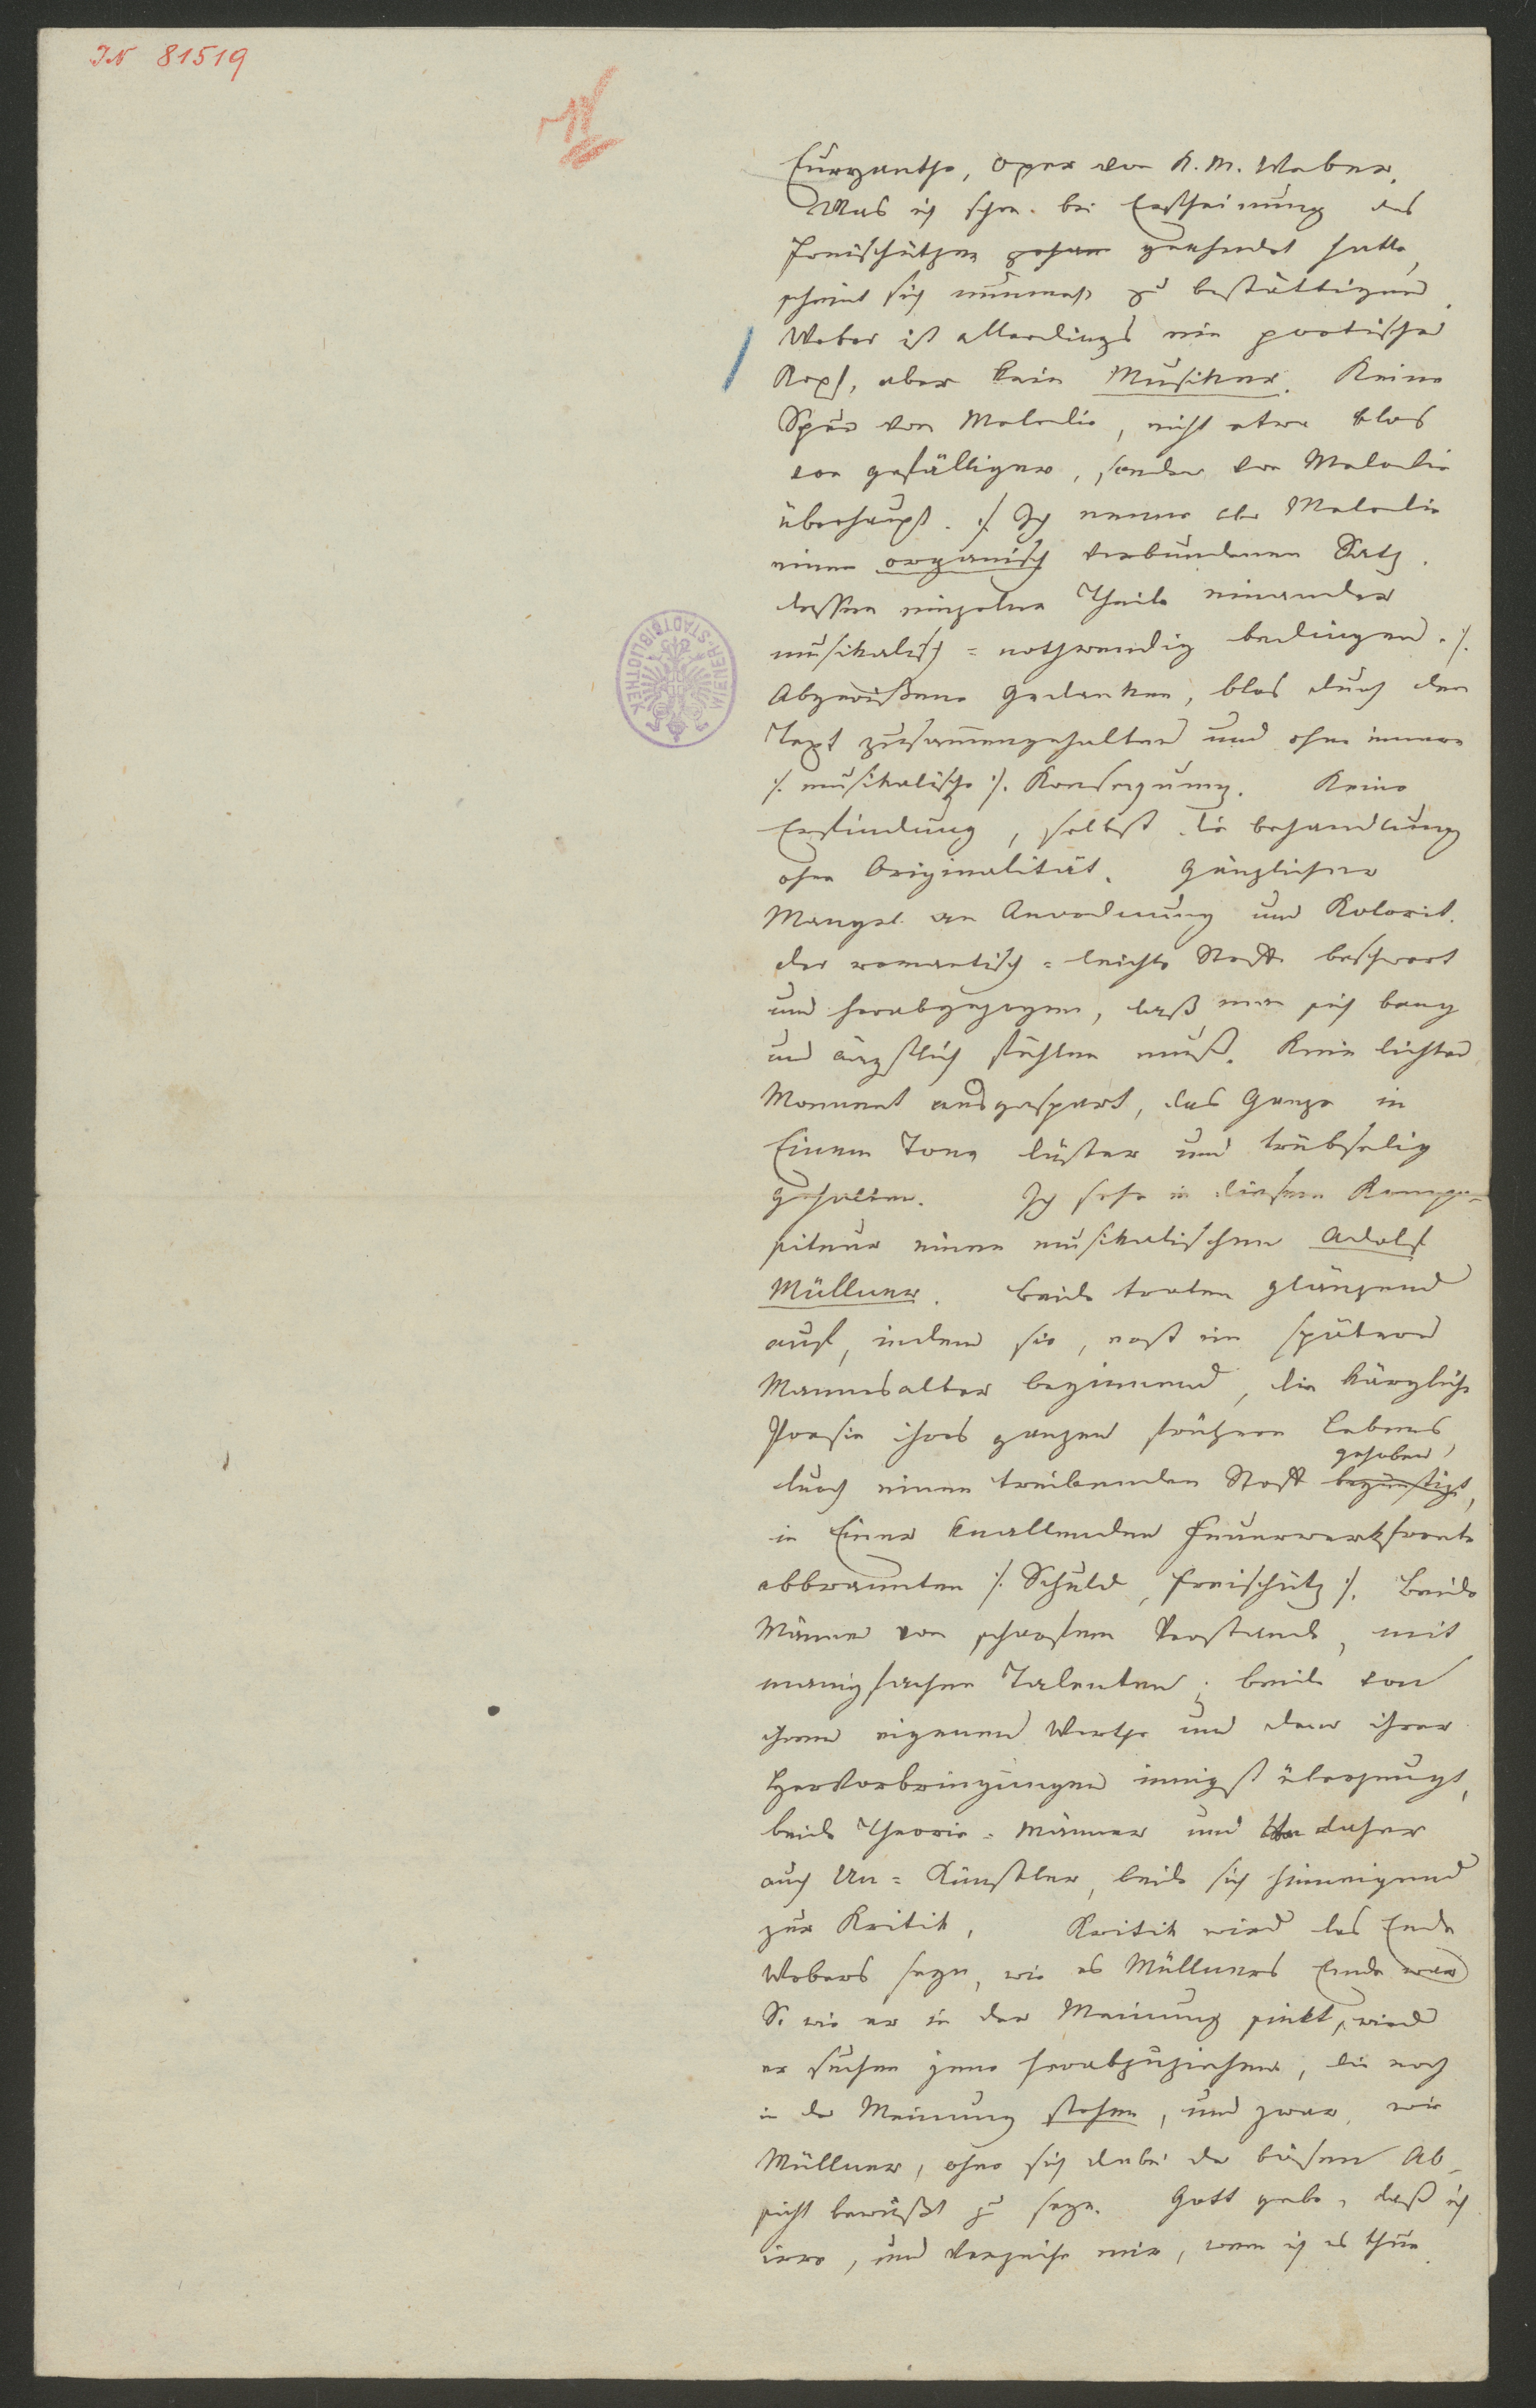 IN 81519
Euryanthe, Oper von K. M. Weber.
Was ich schon bei Erscheinung des
Freischützen geahndet hatte,
scheint sich nunmehr zu bestättigen.
Weber ist allerdings ein poetischer
Kopf, aber kein Musiker. Keine
Spur von Melodie, nicht etwa blos
von gefälliger, sondern von Melodie
überhaupt. /: Ich nenne aber Melodie
einen organisch verbundenen Satz,
dessen einzelne Theile einander
musikalisch=nothwendig bedingen. :/
Abgerißene Gedanken, blos durch den
Text zusammengehalten und ohne innere
/: musikalische :/ Konsequenz. Keine
Erfindung, selbst die Behandlung
ohne Originalität. Gänzlicher
Mangel an Anordnung und Kolorit.
Der romantisch=leichte Stoff beschwert
und herabgezogen, daß man sich bang
und ängstlich fühlen muß. Kein lichter
Moment ausgespart, das Ganze in
Einem Tone düster und trübselig
gehalten. Ich sehe in diesem Kompo=
siteur einen musikalischen Adolf
Müllner. Beide traten glänzend
auf, indem sie, erst im spätern
Mannesalter beginnend, die kärgliche
Poesie ihres ganzen frühern Lebens,
gehoben,
durch einen treibenden Stoff begünstigt,
in Einer knallenden Feuerwerksfronte
abbrannten /: Schuld, Freischütz :/. Beide
Männer von scharfem Verstande, mit
manigfachen Talenten; beide von
ihrem eigenen Werthe und dem ihrer
Hervorbringungen innigst überzeugt,
beide Theorie=Männer und daher
auch Un=Künstler, beide sich hinneigend
zur Kritik. Kritik wird das Ende
Webers seyn, wie es Müllners Ende war
So wie er in der Meinung sinkt, wird
er suchen jene herabzuziehen, die noch
in der Meinung stehen, und zwar, wie
Müllner, ohne sich dabei der bösen Ab=
sicht bewußt zu seyn. Gott gebe, daß ich
irre, und verzeihe mir, wenn ich es thue.
WIENER-STADTBIBLIOTHEK